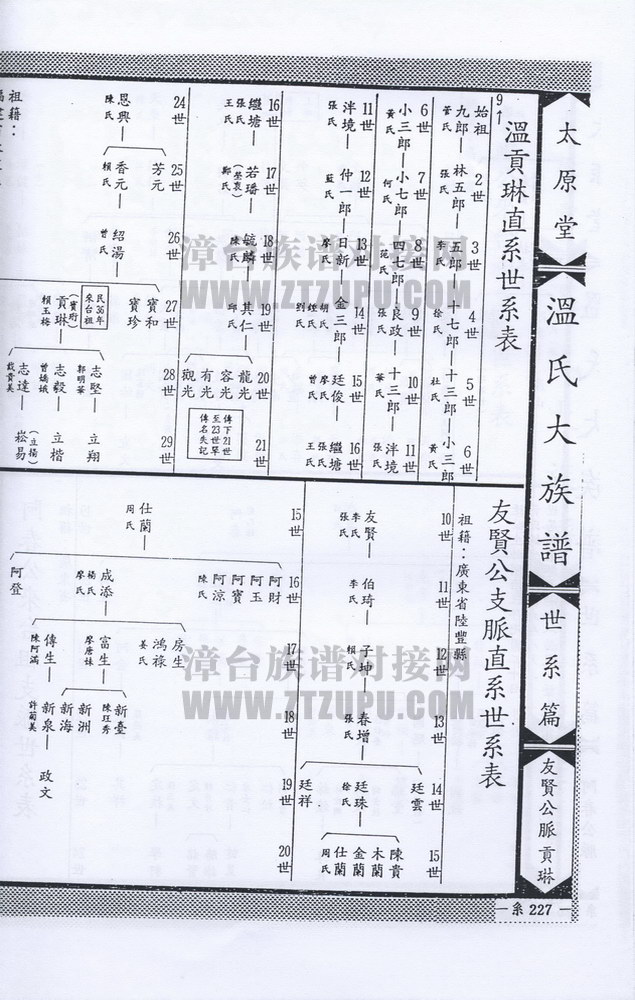 太原堂
溫氏大族譜
世系篇
友賢公脈貢琳
系 227
9↑
溫貢琳直系世系表
始祖 2世 3世 4世 5世 6世
九郎 林五郎 五郎 十七郎 十三郎 小三郎
管氏 張氏 李氏 徐氏 杜氏 黃氏
6世 7世 8世 9世 10世 11世
小三郎 小七郎 四七郎 良政 十三郎 泮境
黃氏 何氏 范氏 張氏 華氏 張氏
11世 12世 13世 14世 15世 16世
泮境 仲一郎 日新 金三郎 廷俊 繼塘
張氏 藍氏 廖氏 胡氏 劉氏 廖氏 曾氏 張氏 王氏
16世 17世 18世 19世 20世 21世
繼塘 若璠 毓麟 其仁 龍光 容光 有光 觀光
張氏 王氏 鄭氏 陳氏 邱氏
傳下21世至23世早傳名失記
24世 25世 26世 27世 28世 29世
恩興 芳元 香元 紹湯 寶和 寶珍 貢琳
陳氏 賴氏 曾氏 (寶珩) 賴玉梅
民36年來台祖
志堅 志毅 志達
郭明華 曾嬌娥 戴貴美
立翔 立楷 崧易
(立揚)
祖籍：
友賢公支脈直系世系表
祖籍：廣東省陸豐縣
10世 11世 12世 13世 14世 15世
友賢 伯琦 子坤 春增 廷雲 廷珠 廷祥
李氏 張氏 李氏 賴氏 張氏 徐氏
陳貴 木蘭 金蘭 仕蘭
周氏
15世 16世 17世 18世 19世 20世
仕蘭
周氏
阿財 阿玉 阿寶 阿涼 成添 阿登
陳氏 楊氏 廖氏
房生 鴻祿 富生 傳生
姜氏 廖唐妹 陳阿滿
新臺 新洲 新海 新泉
陳玨秀 許菊美
政文
漳台族谱对接网
WWW.ZTZUPU.COM
漳台族谱对接网
WWW.ZTZUPU.COM